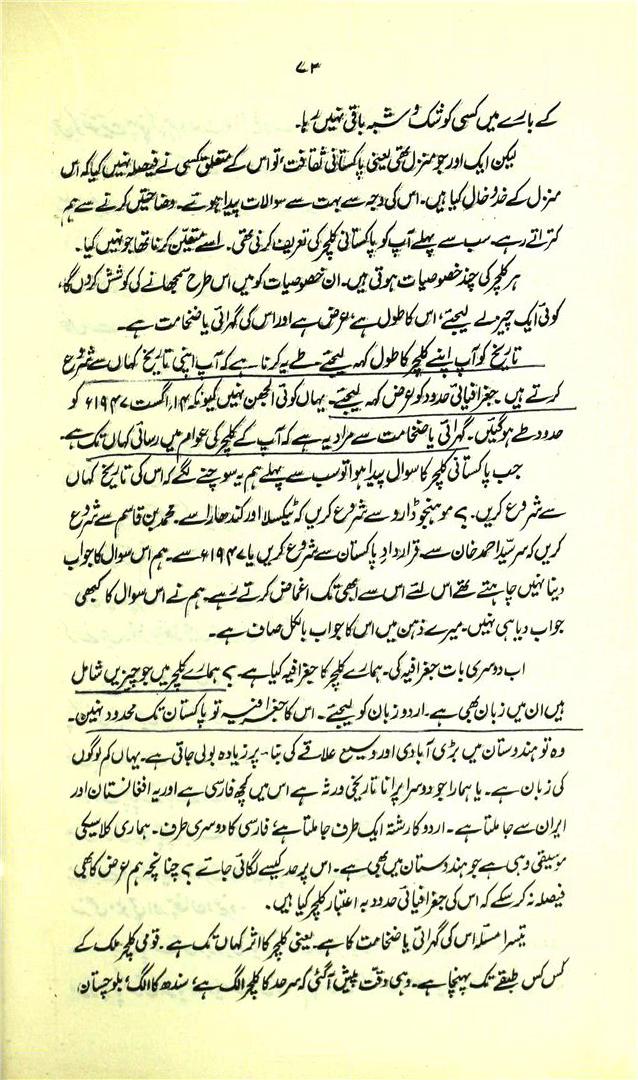 ۷۳
کے بارے میں کسی کو شک و شبہ باقی نہیں رہا۔
لیکن ایک اور جو منزل تھی یعنی پاکستانی ثقافت، تو اس کے متعلق کسی نے فیصلہ نہیں کیا کہ اس
منزل کے خدوخال کیا ہیں۔ اس کی وجہ سے بہت سے سوالات پیدا ہوئے۔ وضاحتیں کرنے سے ہم
کتراتے رہے۔ سب سے پہلے آپ کو پاکستانی کلچر کی تعریف کرنی تھی۔ اسے متعین کرنا تھا جو نہیں کیا۔
ہر کلچر کی چند خصوصیات ہوتی ہیں۔ ان خصوصیات کو میں اس طرح سمجھانے کی کوشش کروں گا،
کوئی ایک چیز لے لیجئے، اس کا طول ہے، عرض ہے اور اس کی گہرائی یا ضخامت ہے۔
تاریخ کو آپ اپنے کلچر کا طول کہہ لیجئے۔ طے یہ کرنا ہے کہ آپ اپنی تاریخ کہاں سے شروع
کرتے ہیں۔ جغرافیائی حدود کو عرض کہہ لیجئے۔ یہاں کوئی الجھن نہیں کیونکہ ۱۴ اگست ۱۹۴۷ء کو
حدود طے ہو گئیں۔ گہرائی یا ضخامت سے مراد یہ ہے کہ آپ کے کلچر کی عوام میں رسائی کہاں تک ہے۔
جب پاکستانی کلچر کا سوال پیدا ہوا تو سب سے پہلے ہم یہ سوچنے لگے کہ اس کی تاریخ کہاں
سے شروع کریں۔ ؟ موہنجو ڈارو سے شروع کریں کہ ٹیکسلا اور گندھارا سے۔ محمد بن قاسم سے شروع
کریں کہ سر سیّد احمد خان سے۔ قراردادِ پاکستان سے شروع کریں یا ۱۹۴۷ء سے۔ ہم اس سوال کا جواب
دینا نہیں چاہتے تھے اس لئے اس سے ابھی تک اغماض کرتے رہے۔ ہم نے اس سوال کا کبھی
جواب دیا ہی نہیں۔ میرے ذہن میں اس کا جواب بالکل صاف ہے۔
اب دوسری بات جغرافیہ کی۔ ہمارے کلچر کا جغرافیہ کیا ہے۔ ؟ ہمارے کلچر میں جو چیزیں شامل
ہیں ان میں زبان بھی ہے۔ اردو زبان کو لیجئے۔ اس کا جغرافیہ تو پاکستان تک محدود نہیں۔
وہ تو ہندوستان میں بڑی آبادی اور وسیع علاقے کی بنا پر زیادہ بولی جاتی ہے۔ یہاں کم لوگوں
کی زبان ہے۔ یا ہمارا جو دوسرا پرانا تاریخی ورثہ ہے اس میں کچھ فارسی ہے اور یہ افغانستان اور
ایران سے جا ملتا ہے۔ اردو کا رشتہ ایک طرف جا ملتا ہے، فارسی کا دوسری طرف۔ ہماری کلاسیکی
موسیقی وہی ہے جو ہندوستان میں بھی ہے۔ اس پر حد کیسے لگائی جائے ؟ چنانچہ ہم عرض کا بھی
فیصلہ نہ کر سکے کہ اس کی جغرافیائی حدود بہ اعتبار کلچر کیا ہیں۔
تیسرا مسئلہ اس کی گہرائی یا ضخامت کا ہے۔ یعنی کلچر کا اثر کہاں تک ہے۔ قومی کلچر ملک کے
کس کس طبقے تک پہنچا ہے۔ وہی دقت پیش آ گئی کہ سرحد کا کلچر الگ ہے، سندھ کا الگ، بلوچستان